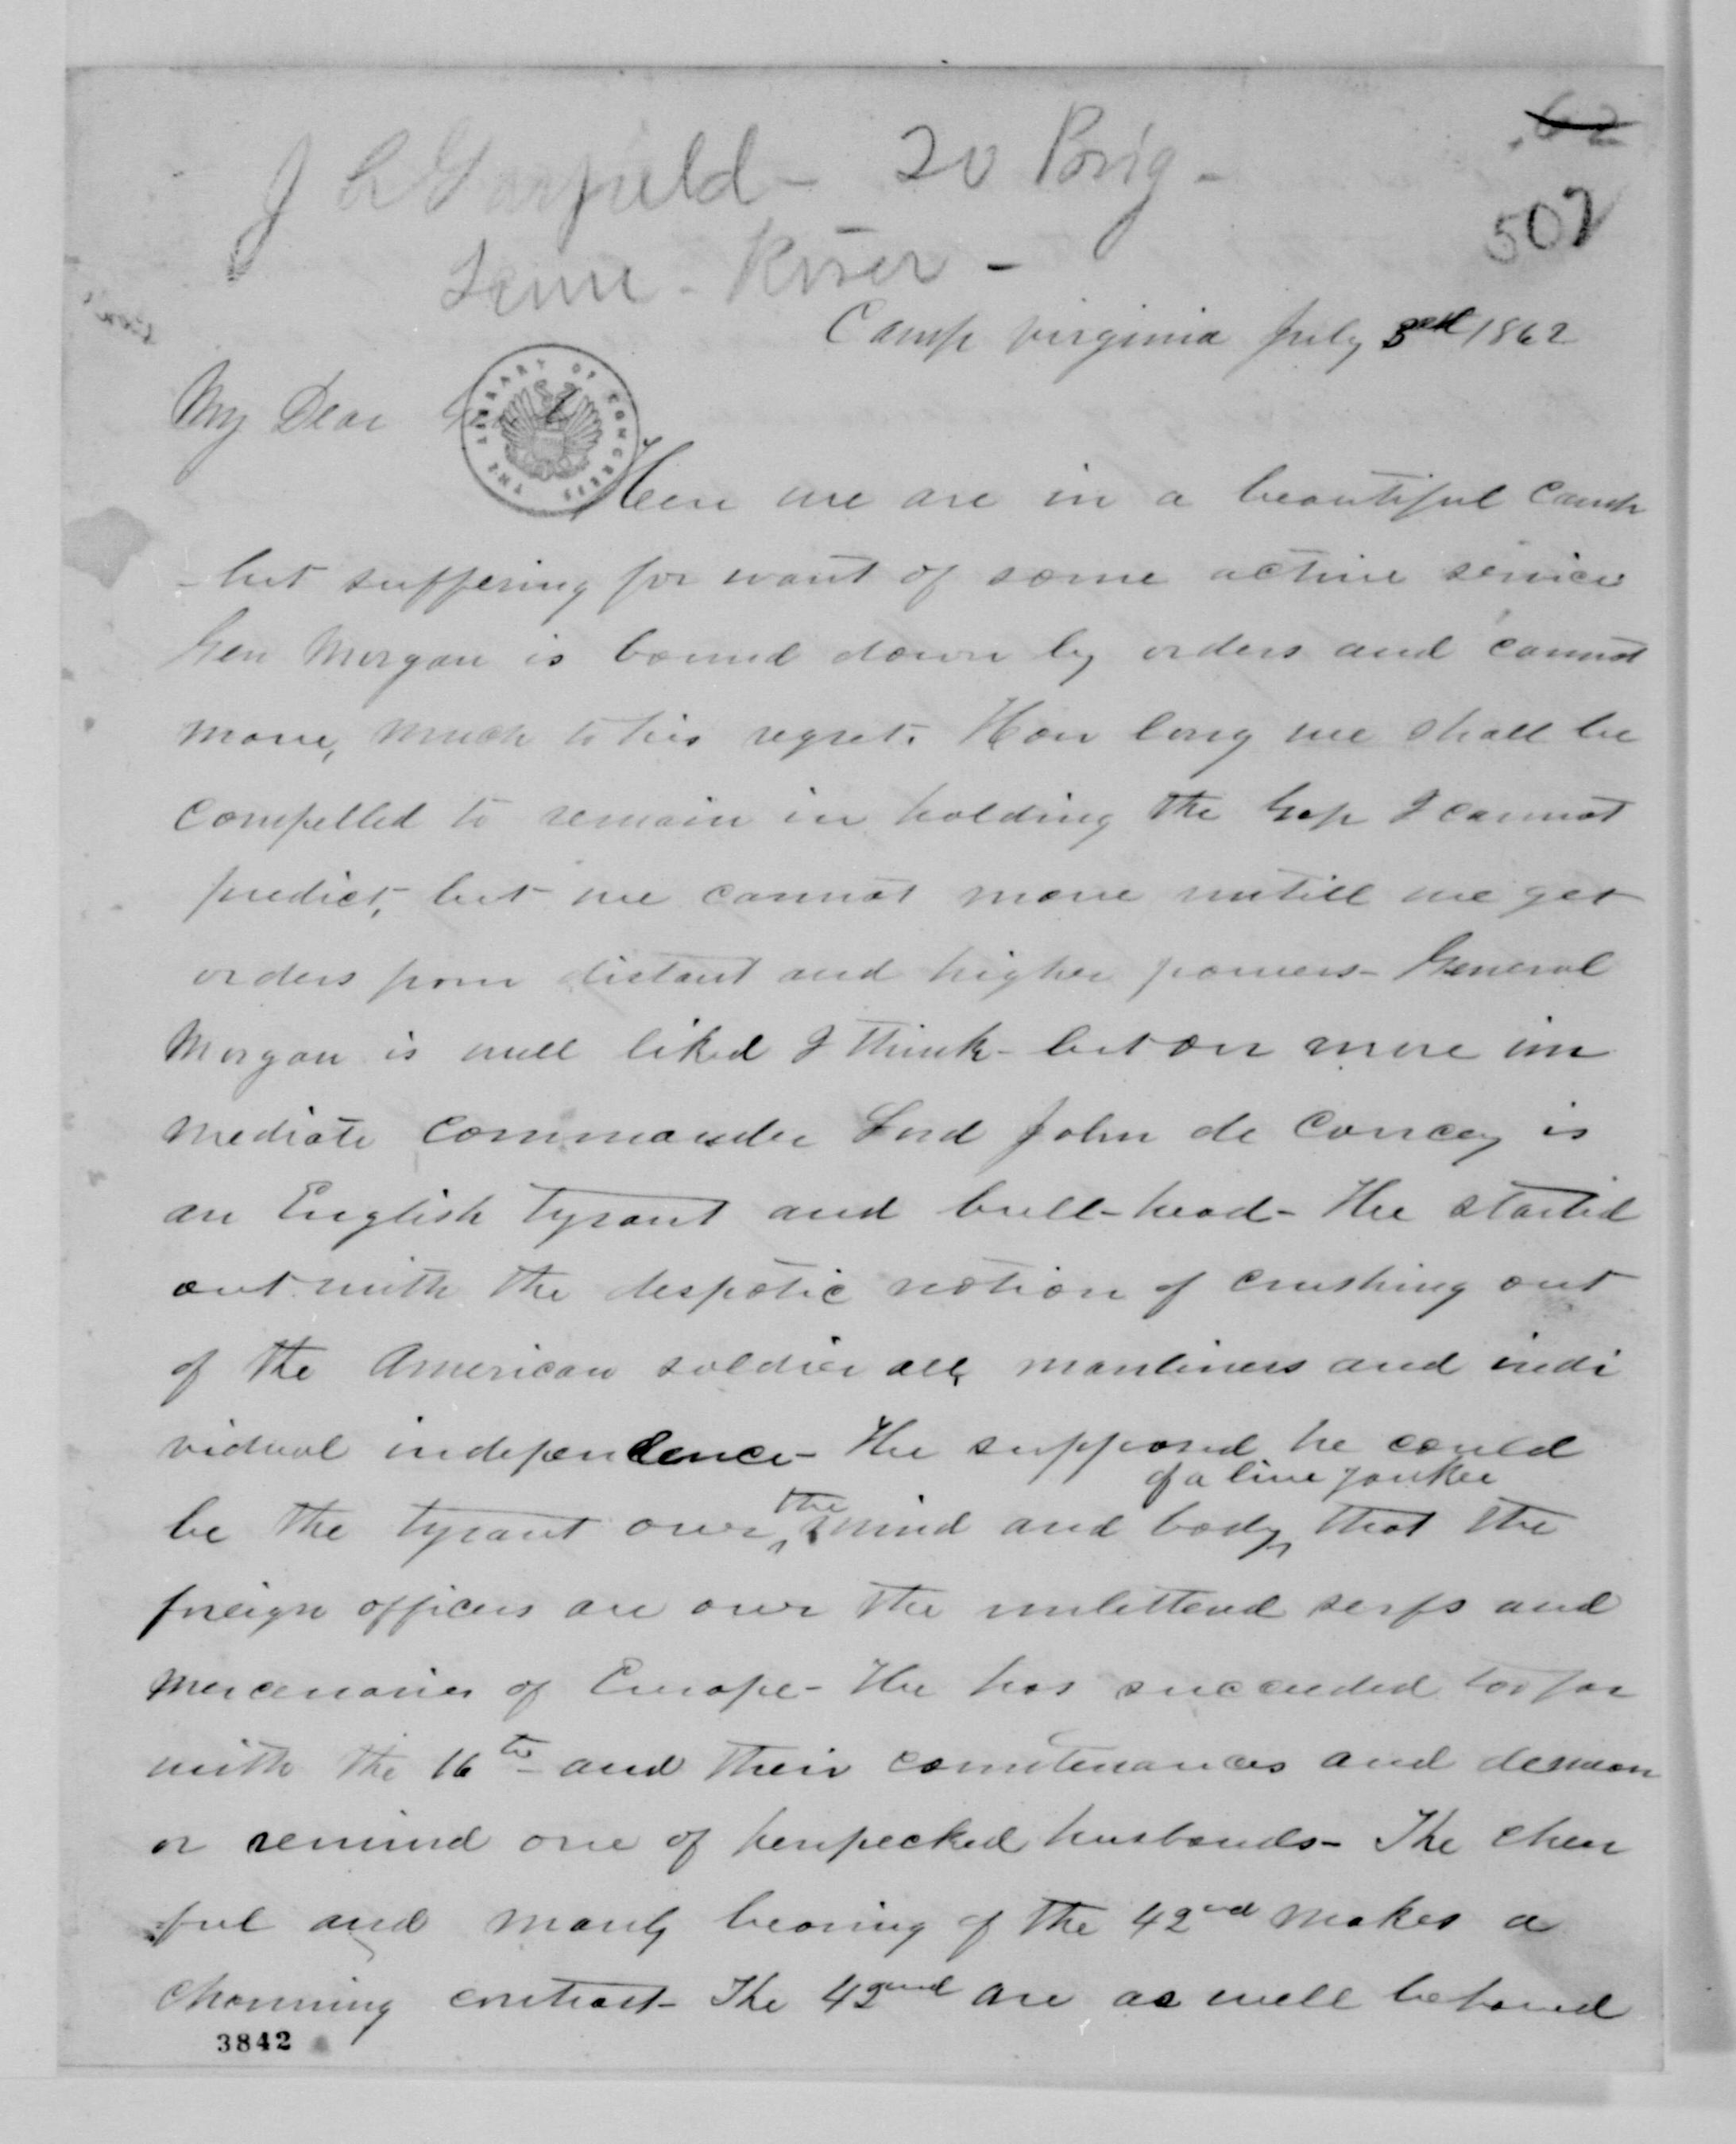 J A Garfield - 20 Brig -
Tenn - River -
62
502
Camp Virginia July 3rd 1862
My Dear
THE LIBRARY OF CONGRESS
Here we are in a beautiful camp
- but suffering for want of some active service
Gen Morgan is bound down by orders and cannot
move, much to his regret. How long we shall be
compelled to remain in holding the Gap I cannot
predict, but we cannot move untill we get
orders from distant and higher powers - General
Morgan is well liked I think - but our more im
mediate commander Lord John de Courcey is
an English tyrant and bull-head - He started
out with the despotic notion of crushing out
of the American soldier all manliness and indi
vidual independence - He supposed he could
of a live yankee
be the tyrant over the mind and body that the
foreign officers are over the unlettered serfs and
mercenaries of Europe - He has succeeded too far
with the 16th - and their countenances and demean
or remind one of henpecked husbands - The cheer
ful and manly bearing of the 42nd makes a
charming contrast - The 42nd are as well behaved
3842